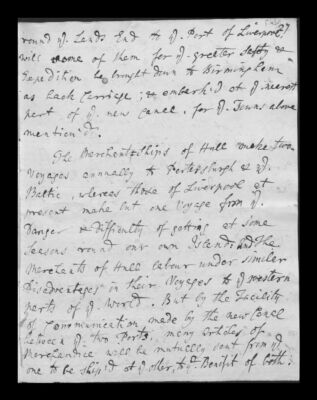 round ye. Lands End to ye. Port of Liverpool
will some of them for ye. greater Safty &
Expedition be brought down to Birmingham
as back Carriage, & embark'd at ye. nearest
part of ye. new Canel, for ye. Towns above
mention'd.
The Merchant Ships of Hull make two
Voyages annually to Petersburgh & ye.
Baltic, whereas those of Liverpool at
present make but one Voyage from ye.
Danger & Difficulty of getting at some
Seasons round our own Island; and the
Merchants of Hull labour under similer
Disadvantages in their Voyages to ye. western
parts of ye. World. But by the Facility
of Communication made by the new Canel
between ye. two Ports, many articles of
Merchandice will be mutually sent from ye.
one to be ship'd at ye. other, to ye. Benifit of both;